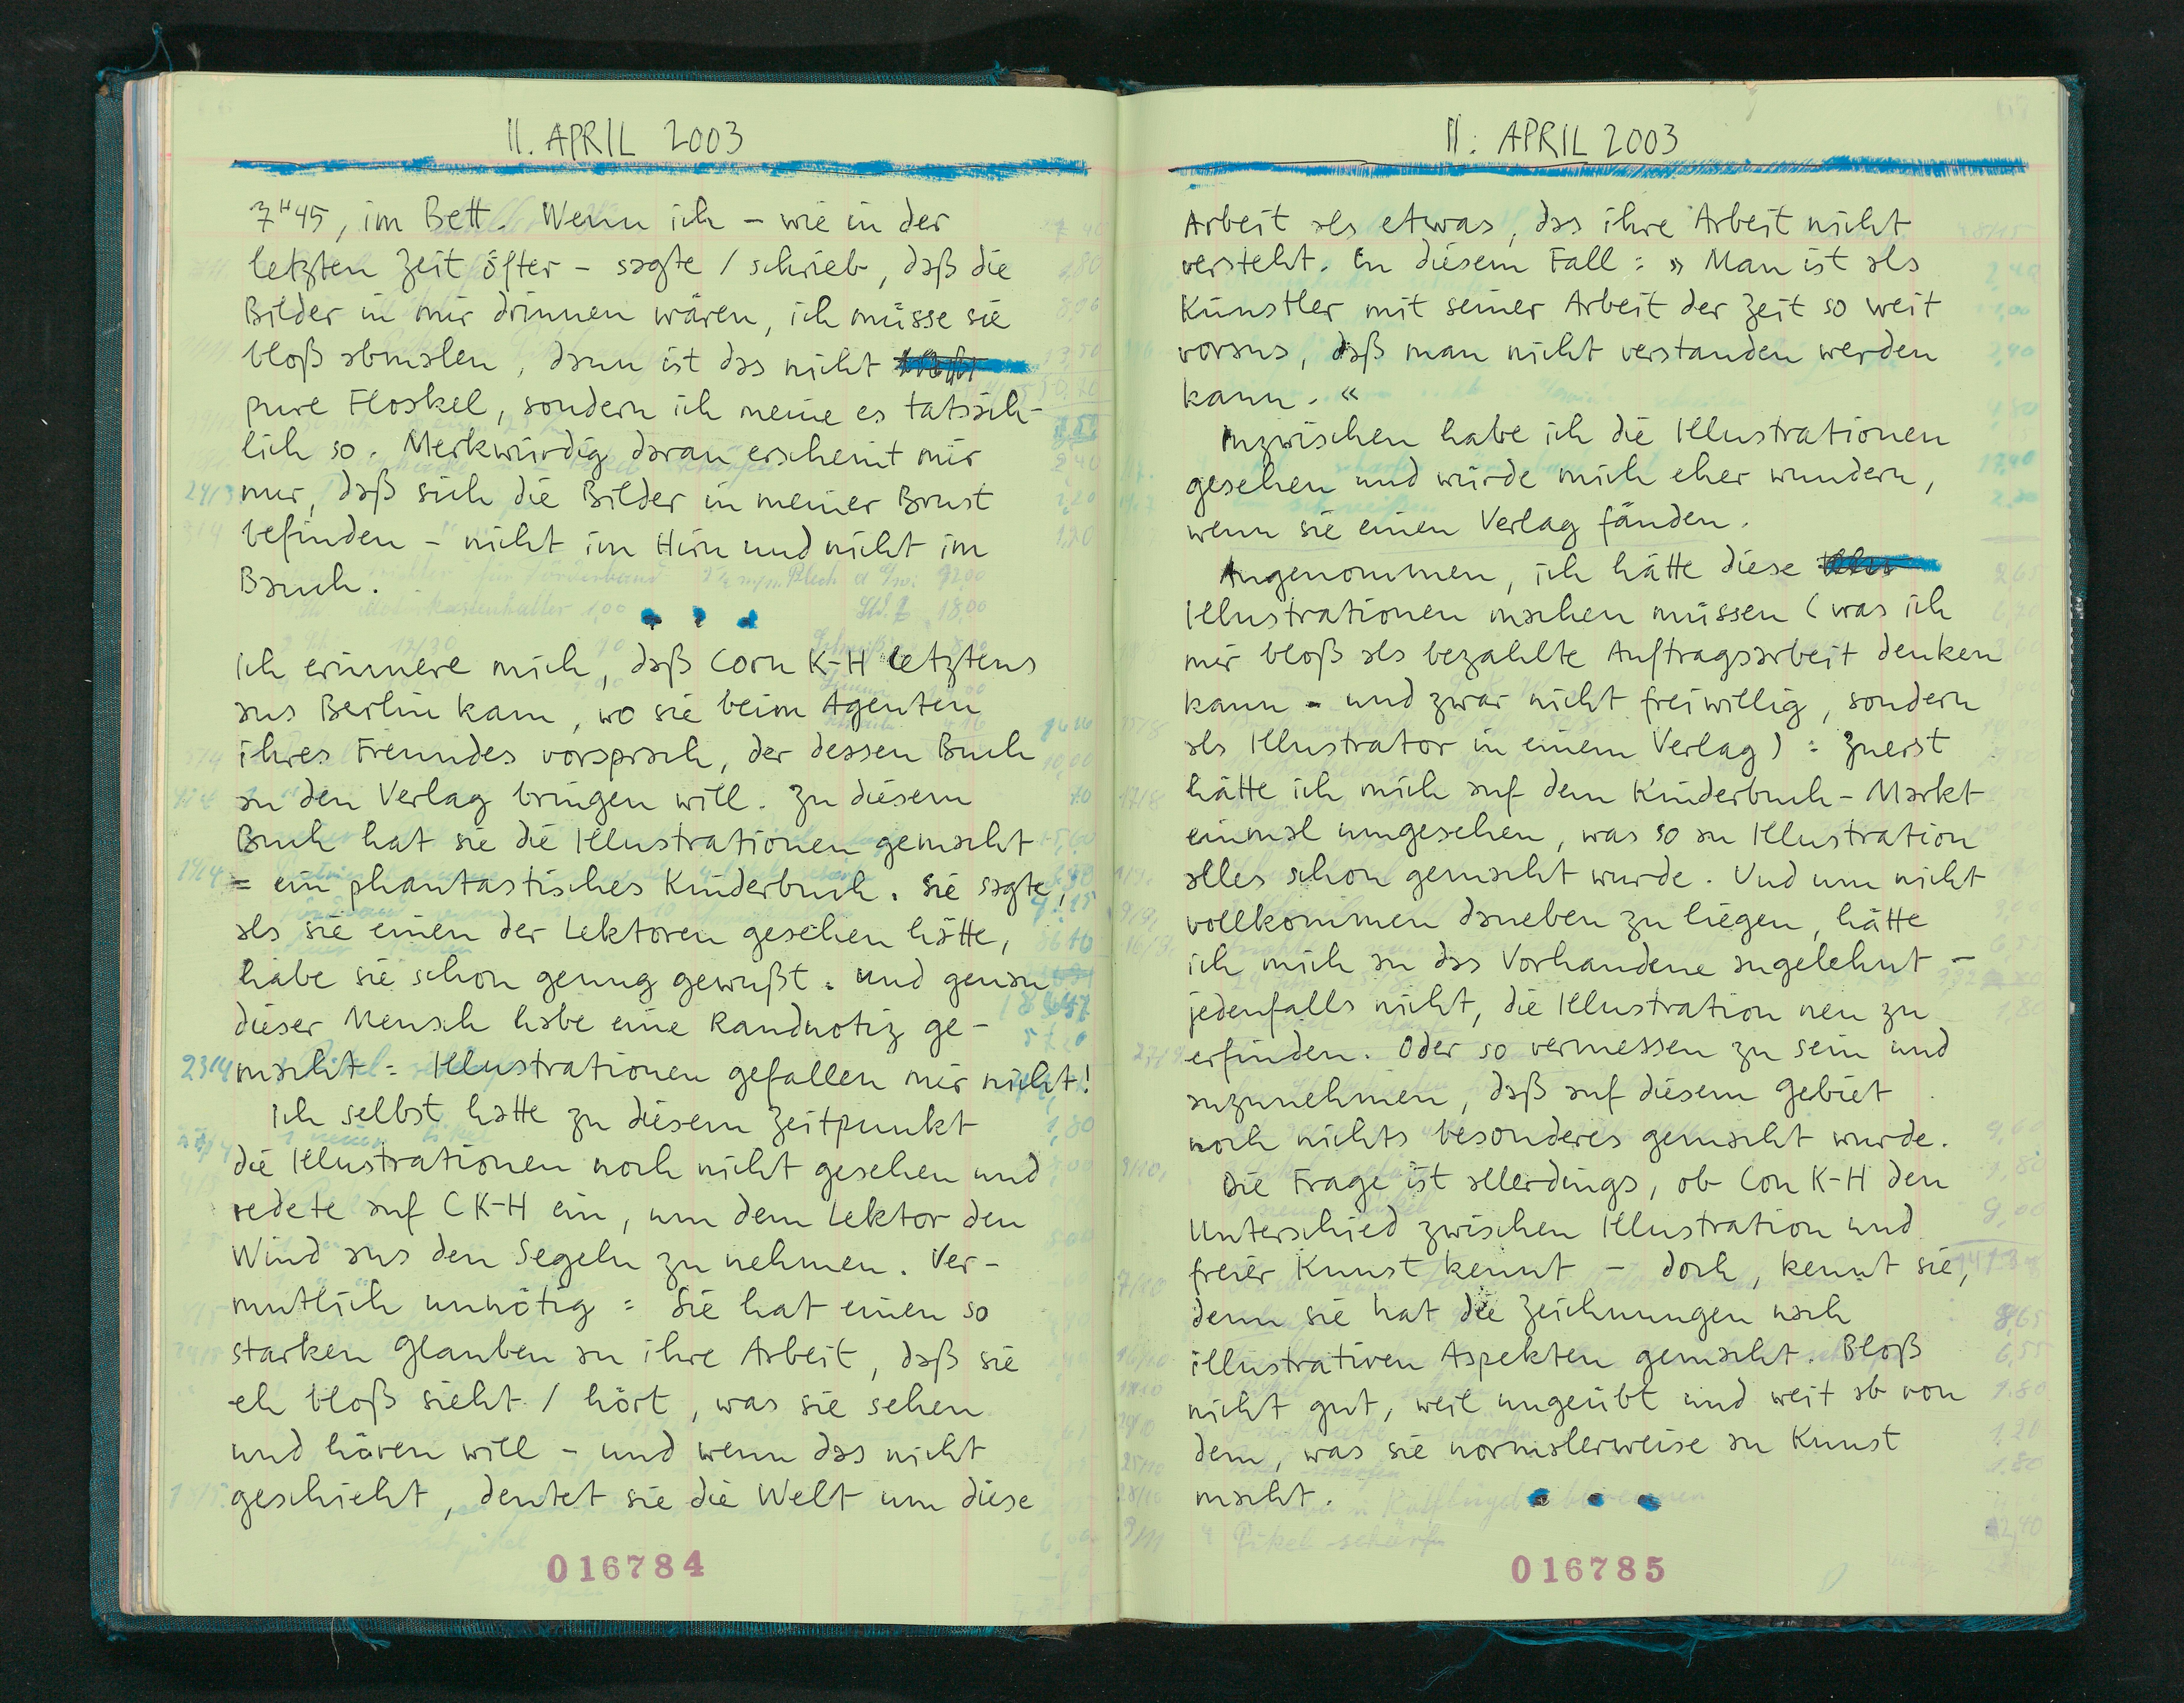 11. APRIL 2003
7ᴴ45, im Bett. Wenn ich – wie in der
letzten Zeit öfter – sagte / schrieb, daß die
Bilder in mir drinnen wären, ich müsse sie
bloß abmalen, dann ist das nicht
pure Floskel, sondern ich meine es tatsäch-
lich so. Merkwürdig daran erscheint mir
nur, daß sich die Bilder in meiner Brust
befinden – nicht im Hirn und nicht im
Bauch.
Ich erinnere mich, daß Corn K-H letztens
aus Berlin kam, wo sie beim Agenten
ihres Freundes vorsprach, der dessen Buch
an den Verlag bringen will. Zu diesem
Buch hat sie die Illustrationen gemacht
= ein phantastisches Kinderbuch. Sie sagte,
als sie einen der Lektoren gesehen hätte,
habe sie schon genug gewußt. Und genau
dieser Mensch habe eine Randnotiz ge-
macht: Illustrationen gefallen mir nicht!
Ich selbst hatte zu diesem Zeitpunkt
die Illustrationen noch nicht gesehen und
redete auf CK-H ein, um dem Lektor den
Wind aus den Segeln zu nehmen. Ver-
mutlich unnötig: Sie hat einen so
starken Glauben an ihre Arbeit, daß sie
eh bloß sieht / hört, was sie sehen
und hören will – und wenn das nicht
geschieht, deutet sie die Welt um diese
016784
11. APRIL 2003
Arbeit als etwas, das ihre Arbeit nicht
versteht. In diesem Fall: » Man ist als
Künstler mit seiner Arbeit der Zeit so weit
voraus, daß man nicht verstanden werden
kann. «
Inzwischen habe ich die Illustrationen
gesehen und würde mich eher wundern,
wenn sie einen Verlag fänden.
Angenommen, ich hätte diese
Illustrationen machen müssen (was ich
mir bloß als bezahlte Auftragsarbeit denken
kann – und zwar nicht freiwillig, sondern
als Illustrator in einem Verlag): Zuerst
hätte ich mich auf dem Kinderbuch-Markt
einmal umgesehen, was so an Illustration
alles schon gemacht wurde. Und um nicht
vollkommen daneben zu liegen, hätte
ich mich an das Vorhandene angelehnt –
jedenfalls nicht, die Illustration neu zu
erfinden. Oder so vermessen zu sein und
anzunehmen, daß auf diesem Gebiet
noch nichts besonderes gemacht wurde.
Die Frage ist allerdings, ob Con K-H den
Unterschied zwischen Illustration und
freier Kunst kennt – doch, kennt sie,
denn sie hat die Zeichnungen nach
illustrativen Aspekten gemacht. Bloß
nicht gut, weil ungeübt und weit ab von
dem, was sie normalerweise an Kunst
macht.
016785